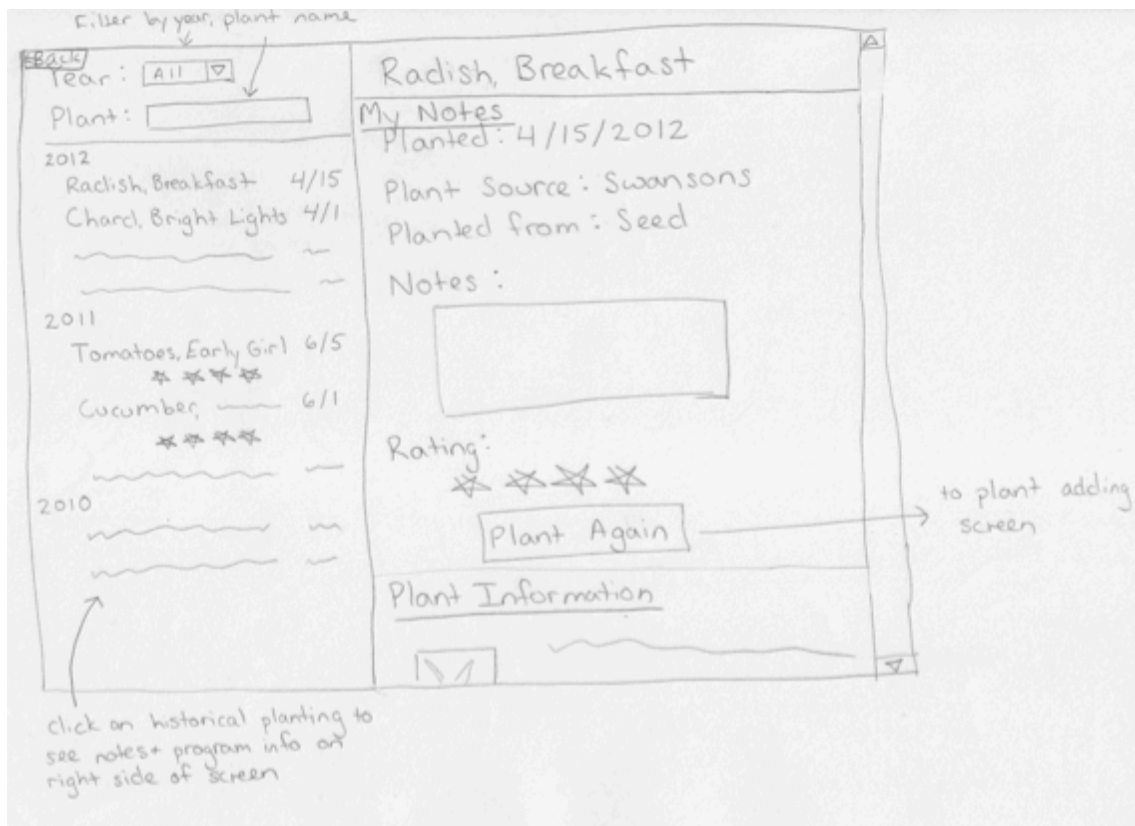 Filter by year, plant name
Back
Year: All
Plant:
2012
Radish, Breakfast 4/15
Chard, Bright Lights 4/1
2011
Tomatoes, Early Girl 6/5
Cucumber, 6/1
2010
Radish, Breakfast
My Notes
Planted: 4/15/2012
Plant Source: Swansons
Planted from: Seed
Notes:
Rating:
Plant Again
Plant Information
to plant adding
screen
click on historical planting to
see notes+ program info on
right side of screen